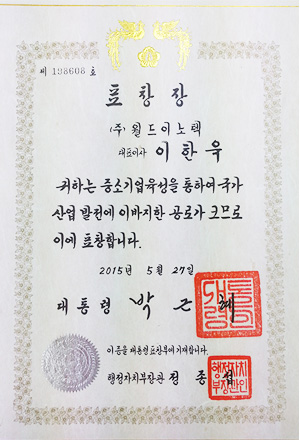 제 198608 호
표 창 장
(주) 월드이노텍
대표이사 이 한 욱
귀하는 중소기업육성을 통하여 국가
산업 발전에 이바지한 공로가 크므로
이에 표창합니다.
2015년 5월 27일
대 통 령 박 근 혜
이 증을 대통령표창부에 기재합니다.
행정자치부장관 정 종 섭